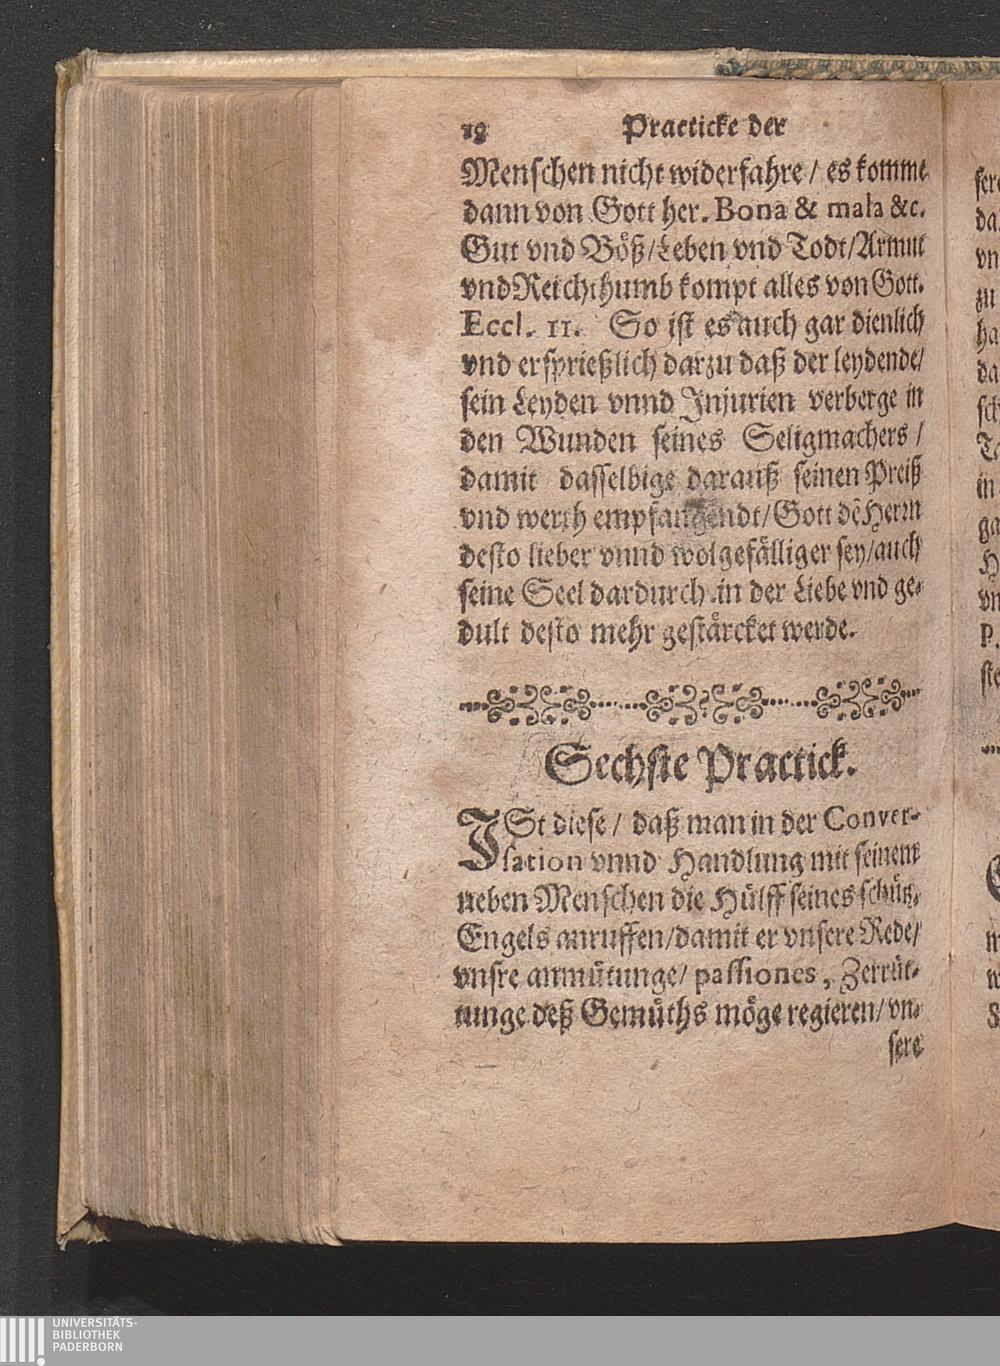 18 Practicke der
Menschen nicht widerfahre / es komme
dann von Gott her. Bona & mala &c.
Gut vnd Böß/Leben vnd Todt/Armut
vnd Reichthumb kompt alles von Gott.
Eccl. 11. So jst es auch gar dienlich
vnd ersprießlich darzu daß der leydende/
sein Leyden vnnd Injurien verberge in
den Wunden seines Seligmachers /
damit dasselbige darauß seinen Preiß
vnd werth empfangendt/Gott dē Herrn
desto lieber vnnd wolgefälliger sey/auch
seine Seel dardurch in der Liebe vnd ge-
dult desto mehr gestärcket werde.
Sechste Practick.
ISt diese / daß man in der Conver-
sation vnnd Handlung mit seinem
neben Menschen die Hülff seines schütz-
Engels anruffen/damit er vnsere Rede/
vnsre anmütunge/ passiones, Zerrüt-
tunge deß Gemüths möge regieren/vn-
sere
UNIVERSITÄTS-
BIBLIOTHEK
PADERBORN